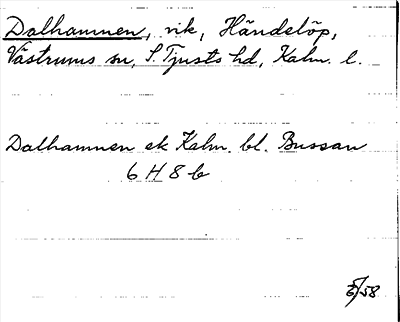 Dalhamnen, vik, Händelöp,
Västrums sn, S. Tjusts hd, Kalm. l.
Dalhamnen ek Kalm. bl. Bussan
6 H 8 b
5/58